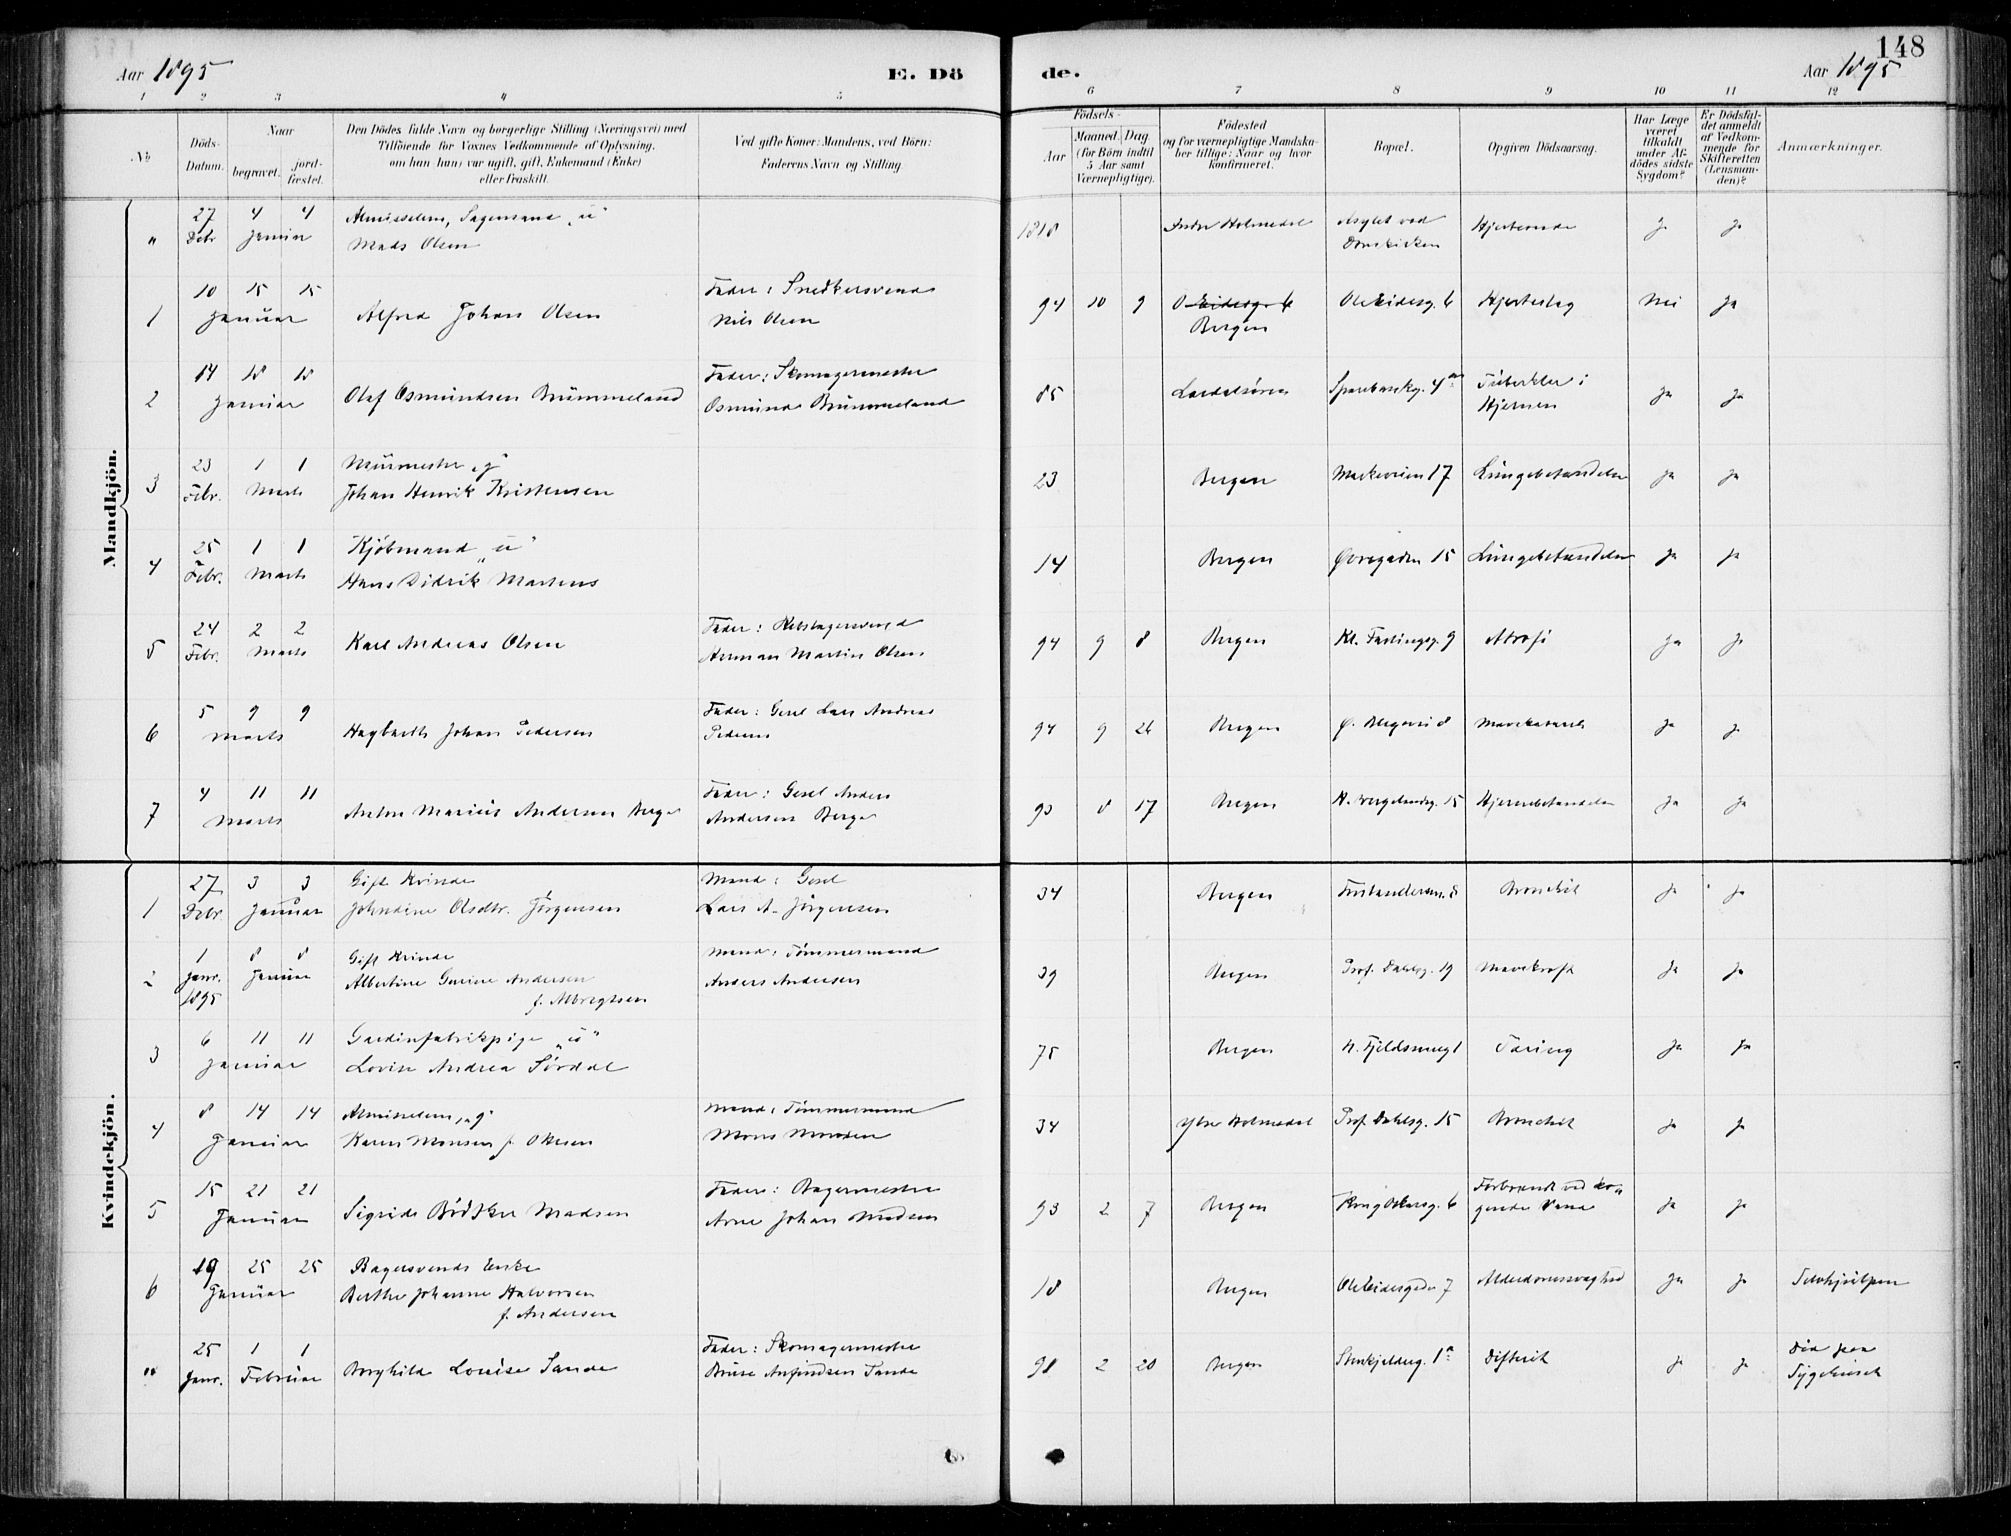 148
Aar 1895
E. Dö
de.
Aar 1895
1 2 3 4 5 6 7 8 9 10 11 12
No
Döds-Datum.
Naar
begravet.
jord-fæstet.
Den Dödes fulde Navn og borgerlige Stilling (Næringsvei) med
Tilföiende for Voxnes Vedkommende af Oplysning,
om han (hun) var ugift, gift, Enkemand (Enke)
eller fraskilt.
Ved gifte Koner: Mandens, ved Börn:
Faderens Navn og Stilling.
Födsels-
Aar
Maaned. Dag.
(for Börn indtil
5 Aar samt
Værnepligtige).
Födested
og for værnepligtige Mandska-
ber tillige: Naar og hvor
konfirmeret.
Bopæl.
Opgiven Dödsaarsag.
Har Læge
været
tilkaldt
under Af-
dödes sidste
Sygdom?
Er Dödsfal-
det anmeldt
af Vedkom-
mende for
Skifteretten
(Lensman-
den)?
Anmærkninger.
Mandkjön.
" 27 4 4 Almisselem, "u" 1818 Holmedal Asylet ved Ja Ja
Debr Januar Mads Olsen Domkirken
10 15 15 Fader: Snedkersvend
1 Januar Alfred Johan Olsen Nils Olsen 94 10 9 Bergen Ole Eidesg. 6 Hjerteslag Nei Ja
14 18 18 Fader: Skomagermester
2 Januar Olaf Osmundsen Brümmeland Osmund Brümmeland 85 Lærdalsøren Sparebankg. 4 Tuberkler i Hjernen Ja Ja
23 1 1 Murmester "g"
3 Febr. Marts Johan Henrik Kristensen 23 Bergen Markeveien 17 Lungebetændelse Ja Ja
25 1 1 Kjøbmand "u"
4 Febr. Marts Hans Didrik Martens 14 Bergen Øvregaden 15 Lungebetændelse Ja Ja
24 2 2 Fader: Rebslagersvend
5 Febr. Marts Karl Andreas Olsen Herman Martin Olsen 94 9 8 Bergen Kl. 9 Atrofi Ja Ja
5 9 9 Fader: Gesel Lars Andreas
6 Marts Hagbarth Johan Pedersen Pedersen 94 9 26 Bergen Ø. 8 Mavekatarrh Ja Ja
4 11 11 Fader: Gesel Anders
7 Marts Anton Marius Andersen Berge Andersen Berge 93 8 17 Bergen H. Wergelandsg. 15 Hjernebetændelse Ja Ja
Kvindekjön.
27 3 3 Gift Kvinde Mand: Gesel
1 Debr. Januar Johndine Olsdtr. Jörgensen Lars A. Jörgensen 34 Bergen 8 Bronchit Ja Ja
1 8 8 Gift Kvinde Mand: Tömmermand
2 Janr. Januar Albertine Gurine Andersen Anders Andersen 39 Bergen Prof. Dahlsg. 19 Mavekræft Ja Ja
1895 f. Albregtsen
6 11 11 Gardinfabrikpige "u"
3 Januar Lovise Andrea Sördal 75 Bergen 1 Tæring Ja Ja
8 14 14 Almisselem, "g" Mand: Tömmermand
4 Januar Karen Monsen f. Mons Monsen 34 Ytre Holmedal Prof. Dahlsg. 15 Bronchit Ja Ja
15 21 21 Fader: Bagermester
5 Januar Sigrid Bödtker Madsen Arne Johan Madsen 93 2 7 Bergen Kong Oskarsg. 6 Forbrændt ved ko- Ja Ja
gende Vand
19 25 25 Bagersvends Enke
6 Januar Berthe Johanne Halvorsen 18 Bergen Ole Eidesgade 7 Alderdomssvaghed Ja Ja Selvhjulpen
f. Andersen
25 1 1 Fader: Skomagermester Död paa
" Janr. Februar Borghild Louise Sande Anfindsen Sande 91 2 20 Bergen Stenkjelderg. 1a Difterit Ja Ja Sygehuset